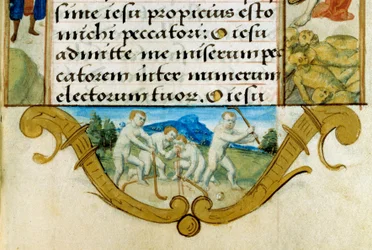 sime iesu propicius esto
michi peccatori: O iesu
admitte me miserum pec
catorem inter numerum
electorum tuorz. O iesu